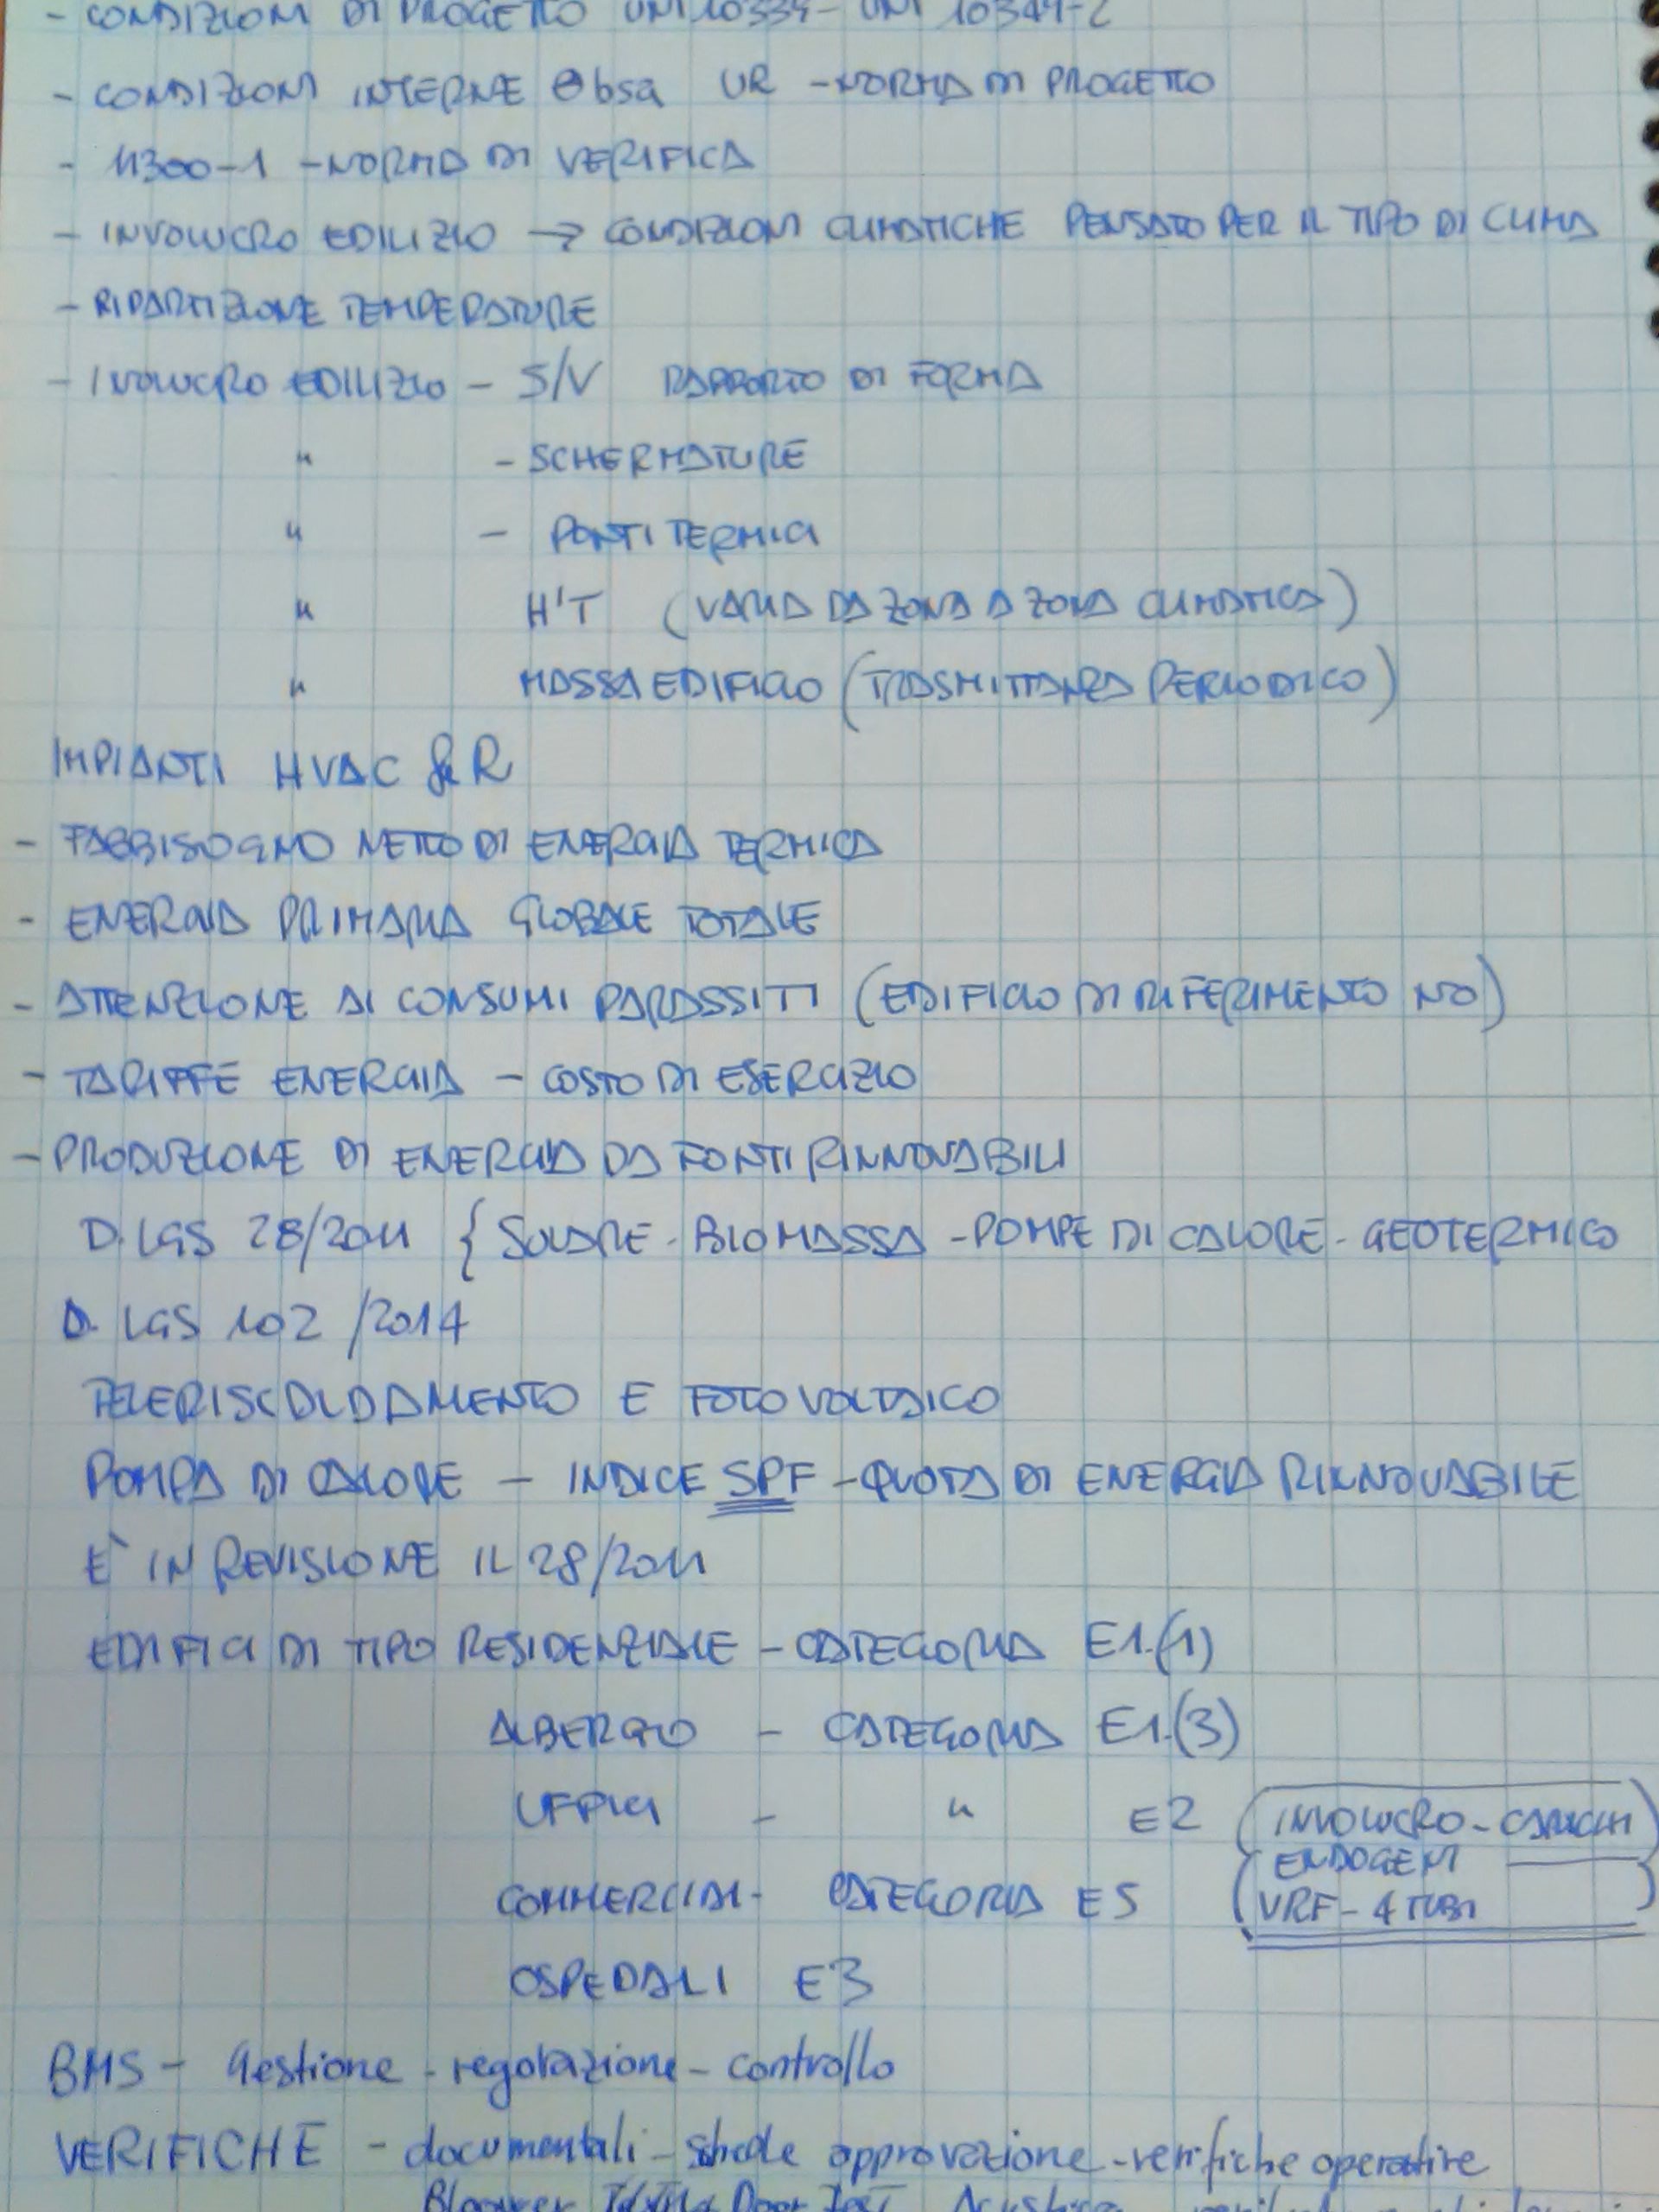 - CONDIZIONI DI PROGETTO UNI 10339 - UNI 10349-2
- CONDIZIONI INTERNE θbsa UR - NORMA DI PROGETTO
- 11300-1 - NORMA DI VERIFICA
- INVOLUCRO EDILIZIO → CONDIZIONI CLIMATICHE PENSATO PER IL TIPO DI CLIMA
- RIPARTIZIONE TEMPERATURE
- INVOLUCRO EDILIZIO - S/V RAPPORTO DI FORMA
" - SCHERMATURE
" - PONTI TERMICI
" H'T (VARIA DA ZONA A ZONA CLIMATICA)
" MASSA EDIFICIO (TRASMITTANZA PERIODICO)
IMPIANTI HVAC & R
- FABBISOGNO NETTO DI ENERGIA TERMICA
- ENERGIA PRIMARIA GLOBALE TOTALE
- ATTENZIONE AI CONSUMI PARASSITI (EDIFICIO DI RIFERIMENTO NO)
- TARIFFE ENERGIA - COSTO DI ESERCIZIO
- PRODUZIONE DI ENERGIA DA FONTI RINNOVABILI
D.LGS 28/2011 { SOLARE - BIOMASSA - POMPE DI CALORE - GEOTERMICO
D. LGS 102/2014
TELERISCALDAMENTO E FOTOVOLTAICO
POMPA DI CALORE - INDICE SPF - QUOTA DI ENERGIA RINNOVABILE
E' IN REVISIONE IL 28/2011
EDIFICI DI TIPO RESIDENZIALE - CATEGORIA E1.(1)
ALBERGO - CATEGORIA E1.(3)
UFFICI - " E2 (INVOLUCRO - CARICHI
ENDOGENI
COMMERCIALI - CATEGORIA E5 VRF - 4 TUBI)
OSPEDALI E3
BMS - Gestione - regolazione - controllo
VERIFICHE - documentali - schede approvazione - verifiche operative
Door Test